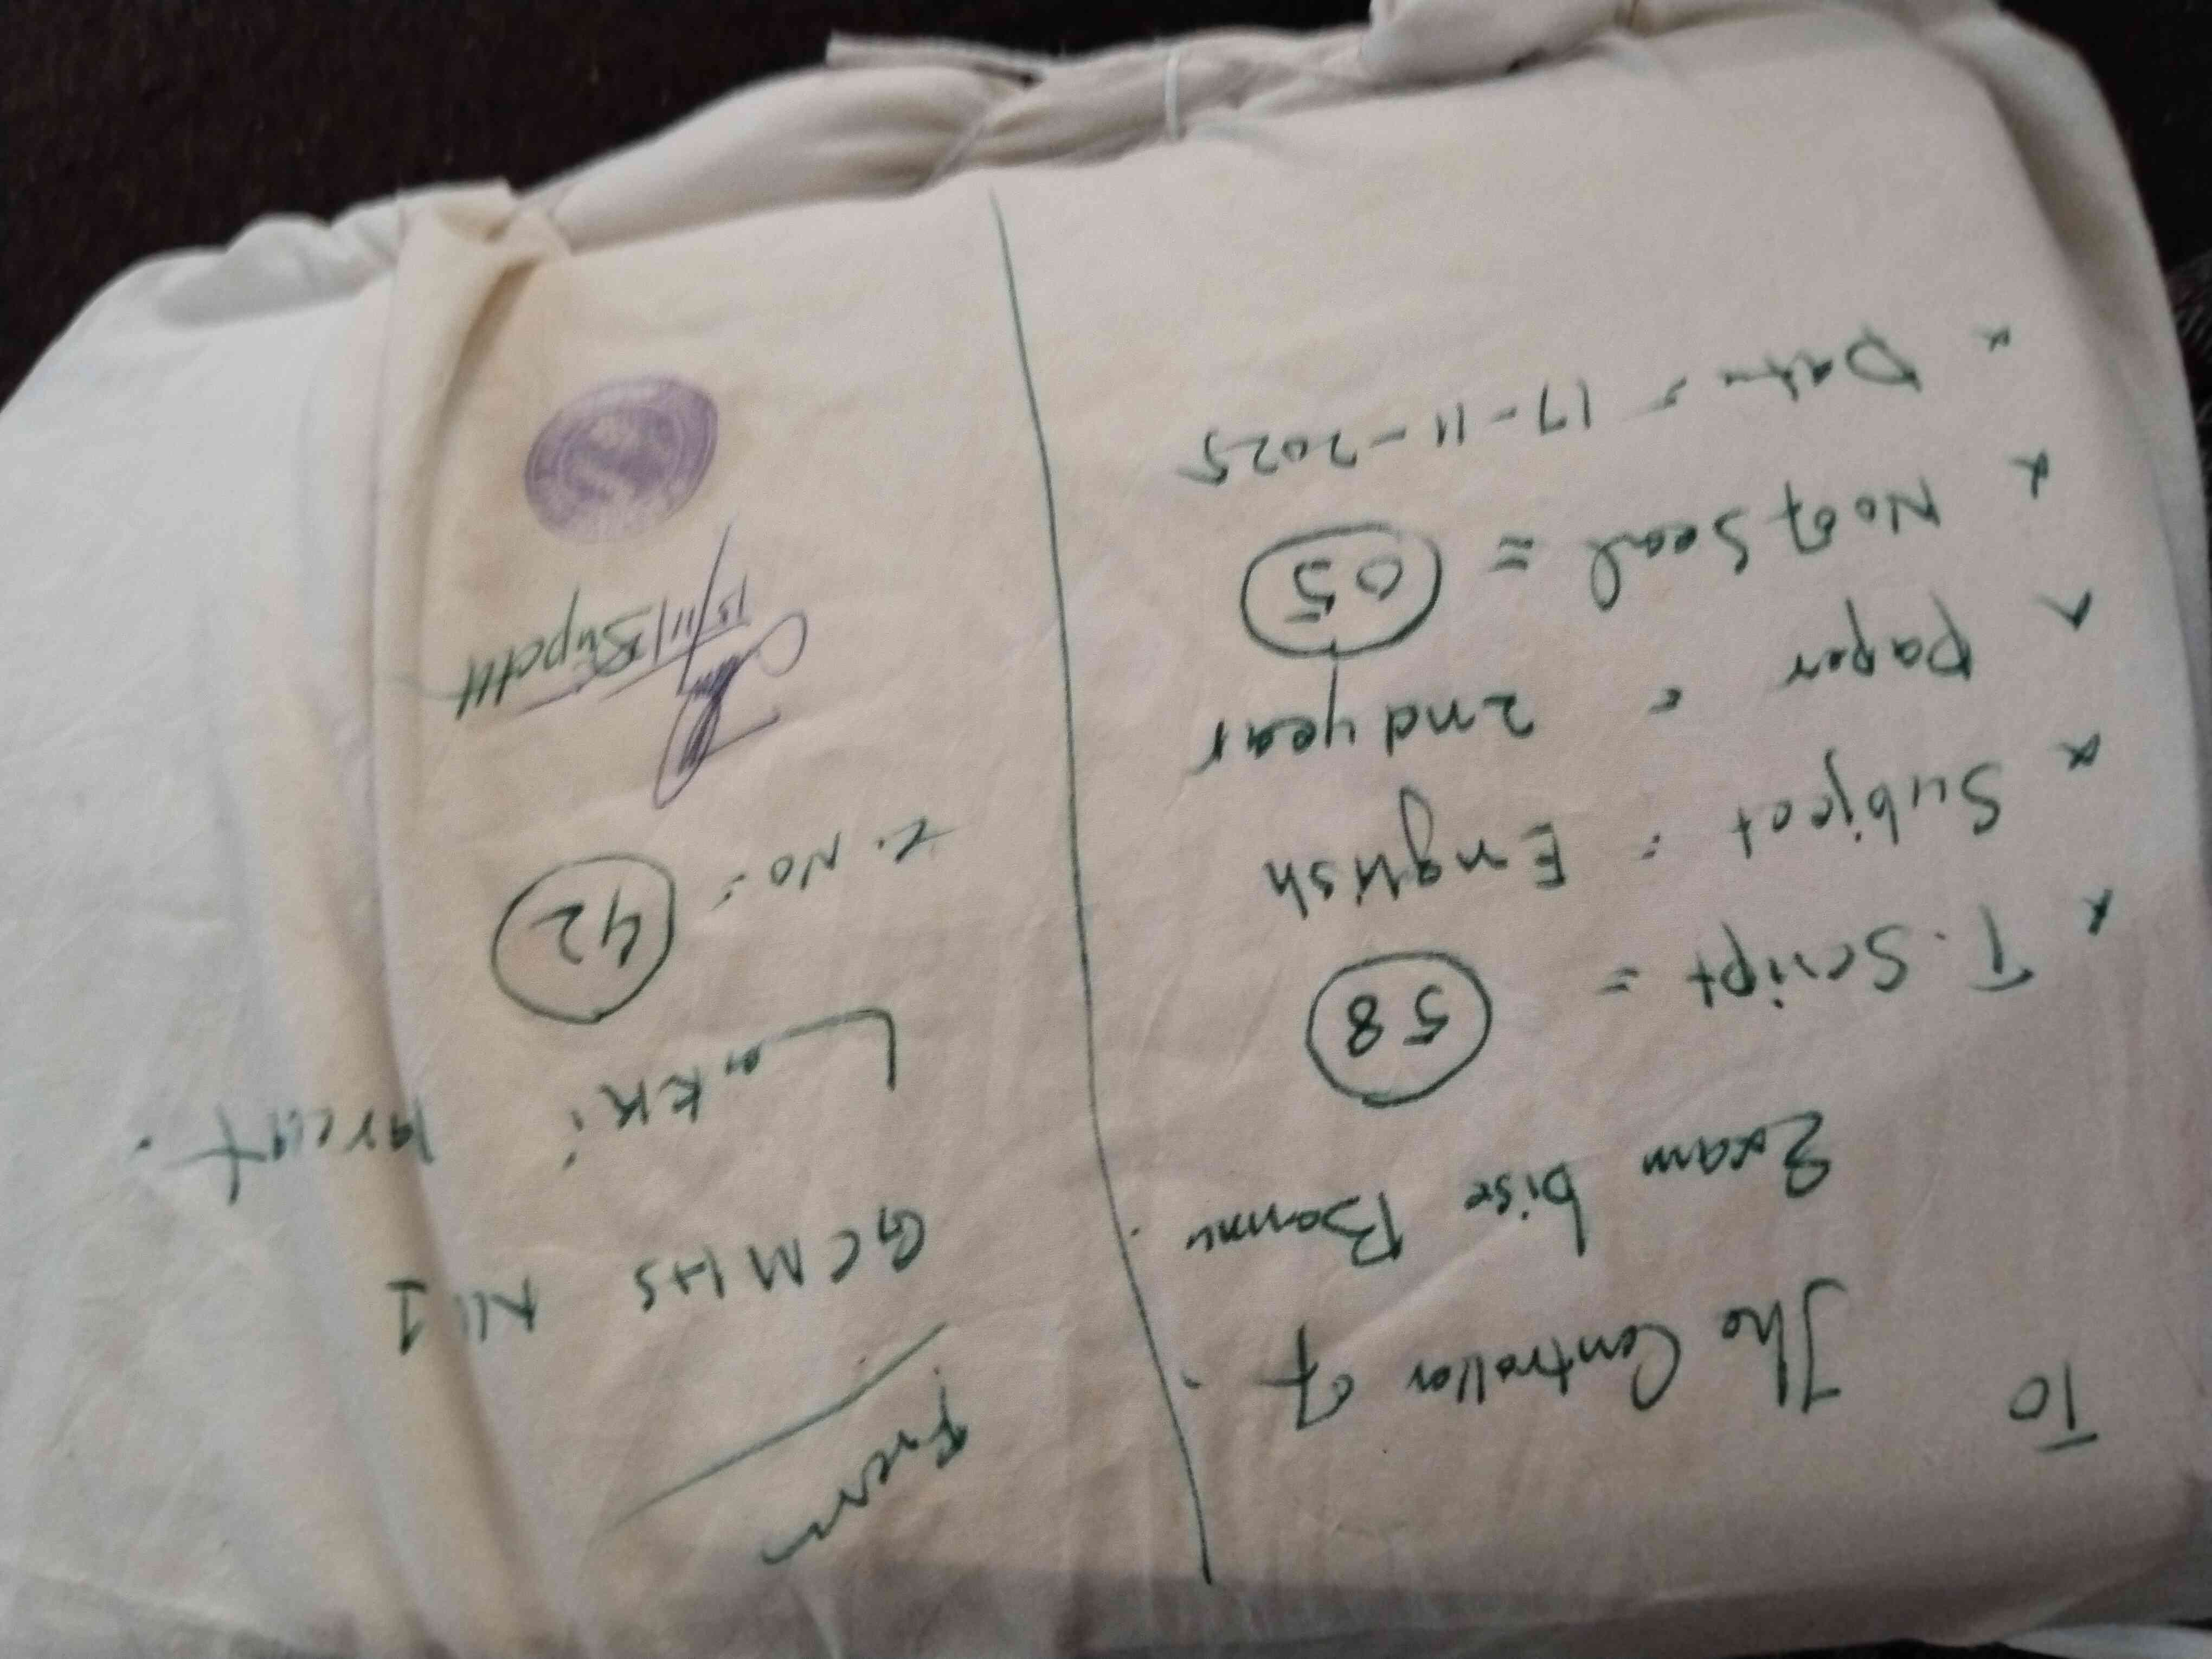 To
The Controller of
Exam bise Bannu.
x T. Script = 58
x Subject = English
x Paper = 2nd year
x No of Seal = 05
x Date = 17-11-2025
From
GCMHS No 1
Lakki Marwat.
C. No = 42
Supdtt